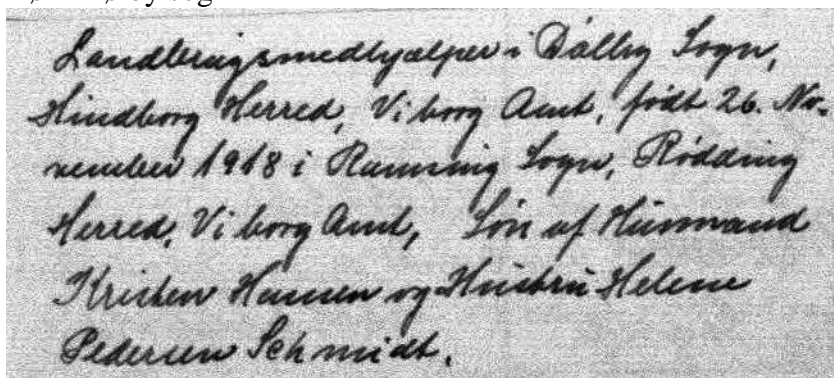 Landbrugsmedhjælper i Dølby Sogn,
Hindborg Herred, Viborg Amt, født 26. No-
vember 1918 i Ramsing Sogn, Rødding
Herred, Viborg Amt, Søn af Husmand
Kristen Hansen og Hustru Helene
Pedersen Schmidt.